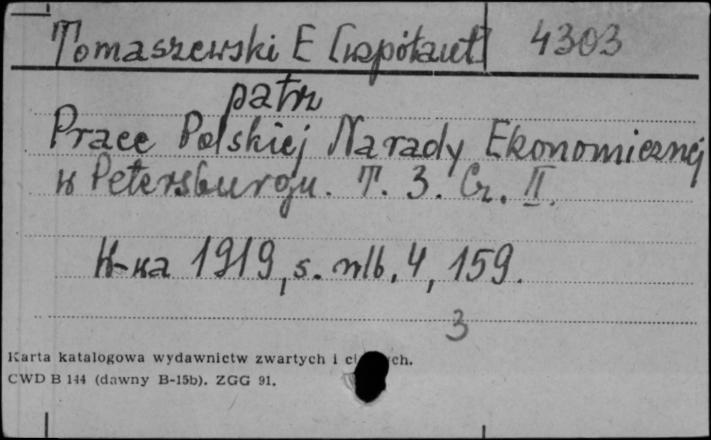 Tomaszewski E [współaut] 4303
patrz
Prace Polskiej Narady Ekonomicznej
w Petersburgu. T. 3. Cz. II.
W-wa 1919, s. nlb. 4, 159.
3
Karta katalogowa wydawnictw zwartych i
CWD B 144 (dawny B-15b). ZGG 91.